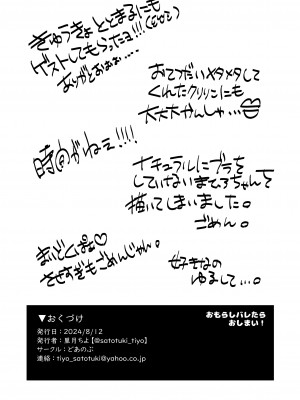 きゅうきょととまるにも
ゲストしてもらったヨ!!!
ありがとおぉぉ…
おてつだいメタメタして
くれたクリリンにも
大大大かんしゃ…
時間がねェ!!!!
ナチュラルにブラを
していないまひろちゃんを
描いてしまいました。
ごめん。
させすぎもごめんじゃん。
好きなの
ゆるして…。
▼おくづけ
発行日：2024/8/12
発行者：里月ちよ【@satotuki_tiyo】
サークル：どあのぶ
連絡：tiyo_satotuki@yahoo.co.jp
おもらしバレたら
おしまい！